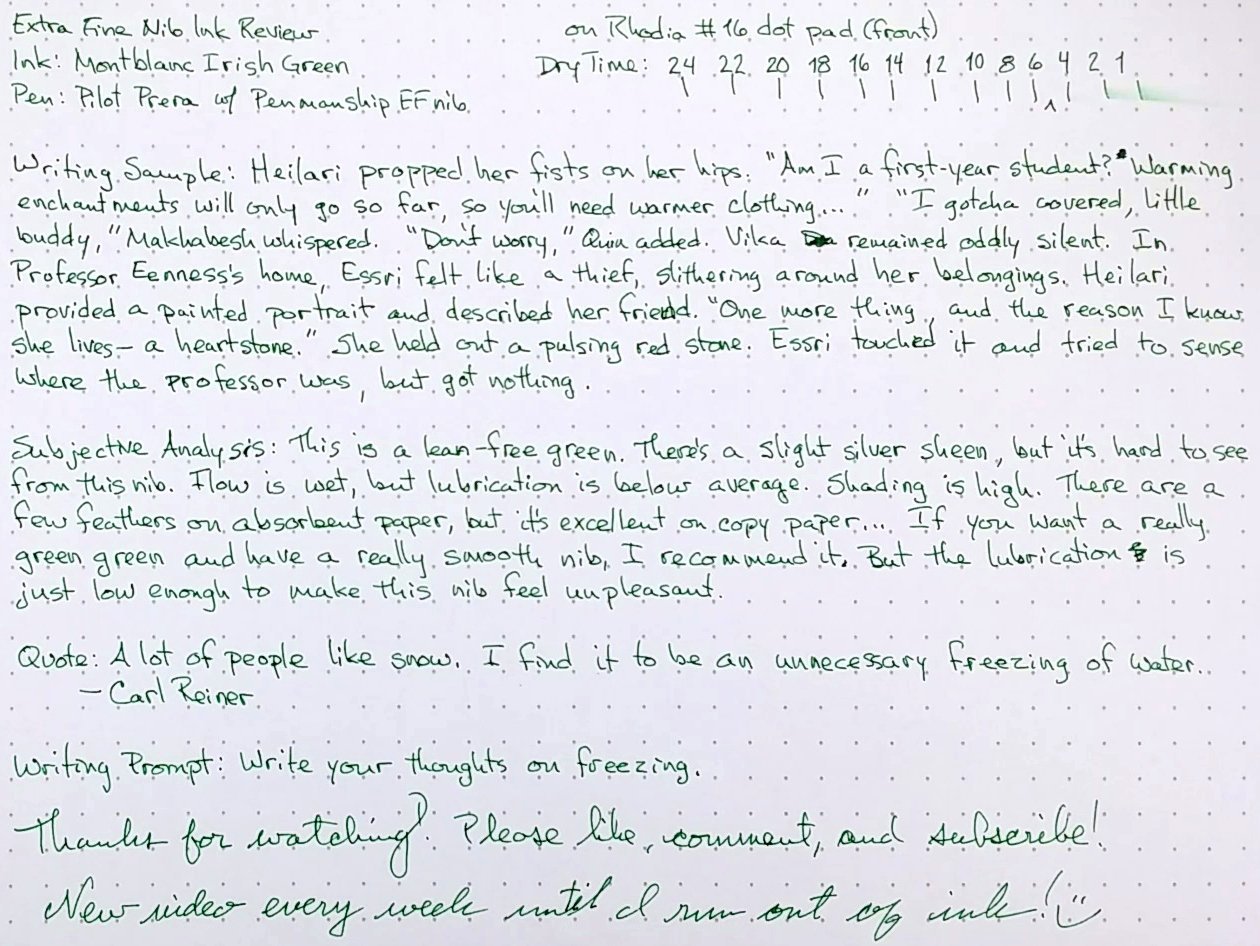 Extra Fine Nib Ink Review
on Rhodia #16 dot pad (front)
Ink: Montblanc Irish Green
Dry Time: 24 22 20 18 16 14 12 10 8 6 4 2 1
Pen: Pilot Prera w/ Penmanship EF nib
Writing Sample: Heilari propped her fists on her hips. "Am I a first-year student? Warming
enchantments will only go so far, so you'll need warmer clothing..." "I gotcha covered, little
buddy," Makhabesh whispered. "Don't worry," Quin added. Vika remained oddly silent. In
Professor Eenness's home, Essri felt like a thief, slithering around her belongings. Heilari
provided a painted portrait and described her friend. "One more thing, and the reason I know
she lives— a heartstone." She held out a pulsing red stone. Essri touched it and tried to sense
where the professor was, but got nothing.
Subjective Analysis: This is a lean-free green. There's a slight silver sheen, but it's hard to see
from this nib. Flow is wet, but lubrication is below average. Shading is high. There are a
few feathers on absorbent paper, but it's excellent on copy paper... If you want a really
green green and have a really smooth nib, I recommend it. But the lubrication is
just low enough to make this nib feel unpleasant.
Quote: A lot of people like snow. I find it to be an unnecessary freezing of water.
— Carl Reiner
Writing Prompt: Write your thoughts on freezing.
Thanks for watching! Please like, comment, and subscribe!
New video every week until I run out of ink! :)